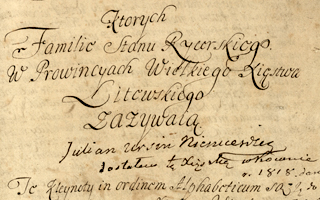 Ktorych
Familie Stanu Rycerskiego
W Prowincyach Wielkiego Xięstwa
Litewskiego
zazywaią
Julian Ursin Niemcewicz
w 1818
Te Kleynoty in ordinem Alphabeticum są